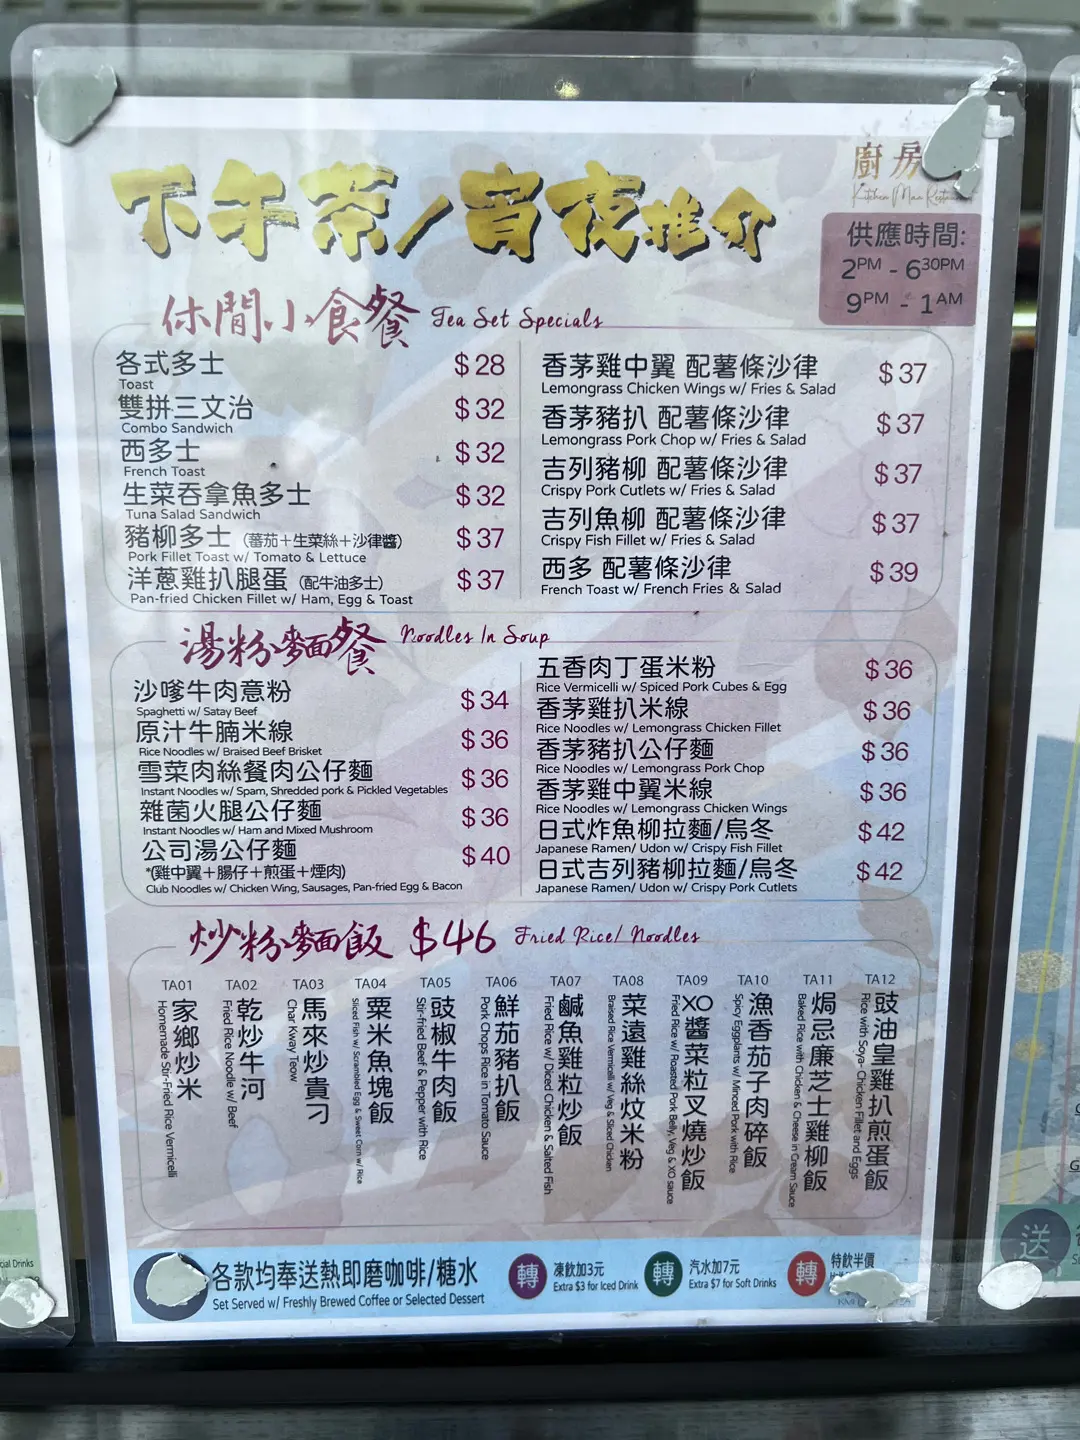 下午茶/宵夜推介
廚房
Kitchen Man Resta
供應時間:
2PM - 630PM
9PM - 1AM
休閒小食餐 Tea Set Specials
各式多士 $28
Toast
雙拼三文治 $32
Combo Sandwich
西多士 $32
French Toast
生菜吞拿魚多士 $32
Tuna Salad Sandwich
豬柳多士 (蕃茄+生菜絲+沙律醬) $37
Pork Fillet Toast w/ Tomato & Lettuce
洋蔥雞扒腿蛋 (配牛油多士) $37
Pan-fried Chicken Fillet w/ Ham, Egg & Toast
香茅雞中翼 配薯條沙律 $37
Lemongrass Chicken Wings w/ Fries & Salad
香茅豬扒 配薯條沙律 $37
Lemongrass Pork Chop w/ Fries & Salad
吉列豬柳 配薯條沙律 $37
Crispy Pork Cutlets w/ Fries & Salad
吉列魚柳 配薯條沙律 $37
Crispy Fish Fillet w/ Fries & Salad
西多 配薯條沙律 $39
French Toast w/ French Fries & Salad
湯粉麵餐 Noodles In Soup
沙嗲牛肉意粉 $34
Spaghetti w/ Satay Beef
原汁牛腩米線 $36
Rice Noodles w/ Braised Beef Brisket
雪菜肉絲餐肉公仔麵 $36
Instant Noodles w/ Spam, Shredded pork & Pickled Vegetables
雜菌火腿公仔麵 $36
Instant Noodles w/ Ham and Mixed Mushroom
公司湯公仔麵 $40
*(雞中翼+腸仔+煎蛋+煙肉)
Club Noodles w/ Chicken Wing, Sausages, Pan-fried Egg & Bacon
五香肉丁蛋米粉 $36
Rice Vermicelli w/ Spiced Pork Cubes & Egg
香茅雞扒米線 $36
Rice Noodles w/ Lemongrass Chicken Fillet
香茅豬扒公仔麵 $36
Rice Noodles w/ Lemongrass Pork Chop
香茅雞中翼米線 $36
Rice Noodles w/ Lemongrass Chicken Wings
日式炸魚柳拉麵/烏冬 $42
Japanese Ramen/ Udon w/ Crispy Fish Fillet
日式吉列豬柳拉麵/烏冬 $42
Japanese Ramen/ Udon w/ Crispy Pork Cutlets
炒粉麵飯 $46 Fried Rice/ Noodles
TA01
家鄉炒米
Homemade Stir-Fried Rice Vermicelli
TA02
乾炒牛河
Fried Rice Noodle w/ Beef
TA03
馬來炒貴刁
Char Kway Teow
TA04
粟米魚塊飯
Sliced Fish w/ Scrambled Egg & Sweet Corn w/ Rice
TA05
豉椒牛肉飯
Stir-fried Beef & Pepper with Rice
TA06
鮮茄豬扒飯
Pork Chops Rice in Tomato Sauce
TA07
鹹魚雞粒炒飯
Fried Rice w/ Diced Chicken & Salted Fish
TA08
菜遠雞絲炆米粉
Braised Rice Vermicelli w/ Veg & Sliced Chicken
TA09
XO醬菜粒叉燒炒飯
Fried Rice w/ Roasted Pork Belly, Veg & XO sauce
TA10
漁香茄子肉碎飯
Spicy Eggplants w/ Minced Pork with Rice
TA11
焗忌廉芝士雞柳飯
Baked Rice with Chicken & Cheese in Cream Sauce
TA12
豉油皇雞扒煎蛋飯
Rice with Soya- Chicken Fillet and Eggs
各款均奉送熱即磨咖啡/糖水
Set Served w/ Freshly Brewed Coffee or Selected Dessert
轉 凍飲加3元
Extra $3 for Iced Drink
轉 汽水加7元
Extra $7 for Soft Drinks
轉 特飲半價
cial Drinks
送